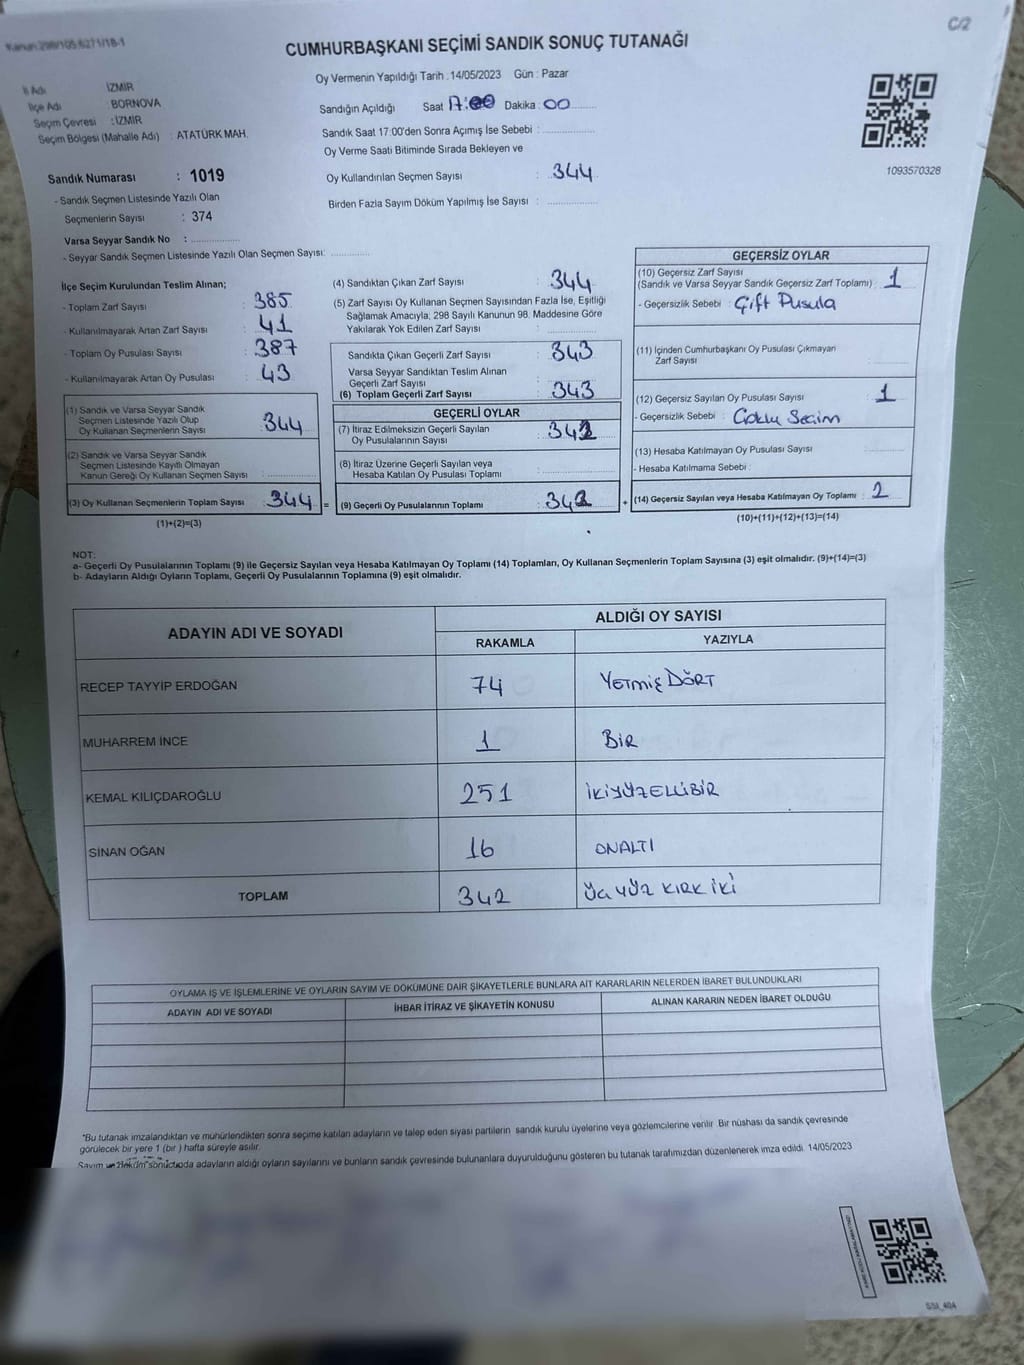 Kanun:298/105;6271/18-1
C/2
CUMHURBAŞKANI SEÇİMİ SANDIK SONUÇ TUTANAĞI
Oy Vermenin Yapıldığı Tarih : 14/05/2023 Gün : Pazar
İl Adı : İZMİR
İlçe Adı : BORNOVA
Seçim Çevresi : İZMİR
Seçim Bölgesi (Mahalle Adı) : ATATÜRK MAH.
Sandığın Açıldığı Saat 17:00 Dakika : 00
Sandık Saat 17:00'den Sonra Açımış İse Sebebi :
Oy Verme Saati Bitiminde Sırada Bekleyen ve
Oy Kullandırılan Seçmen Sayısı : 344
Birden Fazla Sayım Döküm Yapılmış İse Sayısı :
1093570328
Sandık Numarası : 1019
- Sandık Seçmen Listesinde Yazılı Olan
Seçmenlerin Sayısı : 374
Varsa Seyyar Sandık No :
- Seyyar Sandık Seçmen Listesinde Yazılı Olan Seçmen Sayısı:
İlçe Seçim Kurulundan Teslim Alınan;
- Toplam Zarf Sayısı : 385
- Kullanılmayarak Artan Zarf Sayısı : 41
- Toplam Oy Pusulası Sayısı : 387
- Kullanılmayarak Artan Oy Pusulası : 43
(1) Sandık ve Varsa Seyyar Sandık
Seçmen Listesinde Yazılı Olup
Oy Kullanan Seçmenlerin Sayısı : 344
(2) Sandık ve Varsa Seyyar Sandık
Seçmen Listesinde Kayıtlı Olmayan
Kanun Gereği Oy Kullanan Seçmen Sayısı :
(3) Oy Kullanan Seçmenlerin Toplam Sayısı : 344 =
(1)+(2)=(3)
(4) Sandıktan Çıkan Zarf Sayısı : 344
(5) Zarf Sayısı Oy Kullanan Seçmen Sayısından Fazla İse, Eşitliği
Sağlamak Amacıyla; 298 Sayılı Kanunun 98. Maddesine Göre
Yakılarak Yok Edilen Zarf Sayısı :
Sandıkta Çıkan Geçerli Zarf Sayısı : 343
Varsa Seyyar Sandıktan Teslim Alınan
Geçerli Zarf Sayısı :
(6) Toplam Geçerli Zarf Sayısı : 343
GEÇERLİ OYLAR
(7) İtiraz Edilmeksizin Geçerli Sayılan
Oy Pusulalarının Sayısı : 342
(8) İtiraz Üzerine Geçerli Sayılan veya
Hesaba Katılan Oy Pusulası Toplamı :
(9) Geçerli Oy Pusulalarının Toplamı : 342 +
GEÇERSİZ OYLAR
(10) Geçersiz Zarf Sayısı
(Sandık ve Varsa Seyyar Sandık Geçersiz Zarf Toplamı) : 1
- Geçersizlik Sebebi : Çift Pusula
(11) İçinden Cumhurbaşkanı Oy Pusulası Çıkmayan
Zarf Sayısı :
(12) Geçersiz Sayılan Oy Pusulası Sayısı : 1
- Geçersizlik Sebebi : Çoklu Seçim
(13) Hesaba Katılmayan Oy Pusulası Sayısı :
- Hesaba Katılmama Sebebi :
(14) Geçersiz Sayılan veya Hesaba Katılmayan Oy Toplamı : 2
(10)+(11)+(12)+(13)=(14)
NOT:
a- Geçerli Oy Pusulalarının Toplamı (9) ile Geçersiz Sayılan veya Hesaba Katılmayan Oy Toplamı (14) Toplamları, Oy Kullanan Seçmenlerin Toplam Sayısına (3) eşit olmalıdır. (9)+(14)=(3)
b- Adayların Aldığı Oyların Toplamı, Geçerli Oy Pusulalarının Toplamına (9) eşit olmalıdır.
ADAYIN ADI VE SOYADI
ALDIĞI OY SAYISI
RAKAMLA YAZIYLA
RECEP TAYYİP ERDOĞAN 74 YETMİŞ DÖRT
MUHARREM İNCE 1 BİR
KEMAL KILIÇDAROĞLU 251 İKİYÜZELLİBİR
SİNAN OĞAN 16 ONALTI
TOPLAM 342 ÜÇ YÜZ KIRK İKİ
OYLAMA İŞ VE İŞLEMLERİNE VE OYLARIN SAYIM VE DÖKÜMÜNE DAİR ŞİKAYETLERLE BUNLARA AİT KARARLARIN NELERDEN İBARET BULUNDUKLARI
ADAYIN ADI VE SOYADI İHBAR İTİRAZ VE ŞİKAYETİN KONUSU ALINAN KARARIN NEDEN İBARET OLDUĞU
*Bu tutanak imzalandıktan ve mühürlendikten sonra seçime katılan adayların ve talep eden siyasi partilerin sandık kurulu üyelerine veya gözlemcilerine verilir. Bir nüshası da sandık çevresinde
görülecek bir yere 1 (bir) hafta süreyle asılır.
Sayım ve döküm sonucunda adayların aldığı oyların sayılarını ve bunların sandık çevresinde bulunanlara duyurulduğunu gösteren bu tutanak tarafımızdan düzenlenerek imza edildi. 14/05/2023